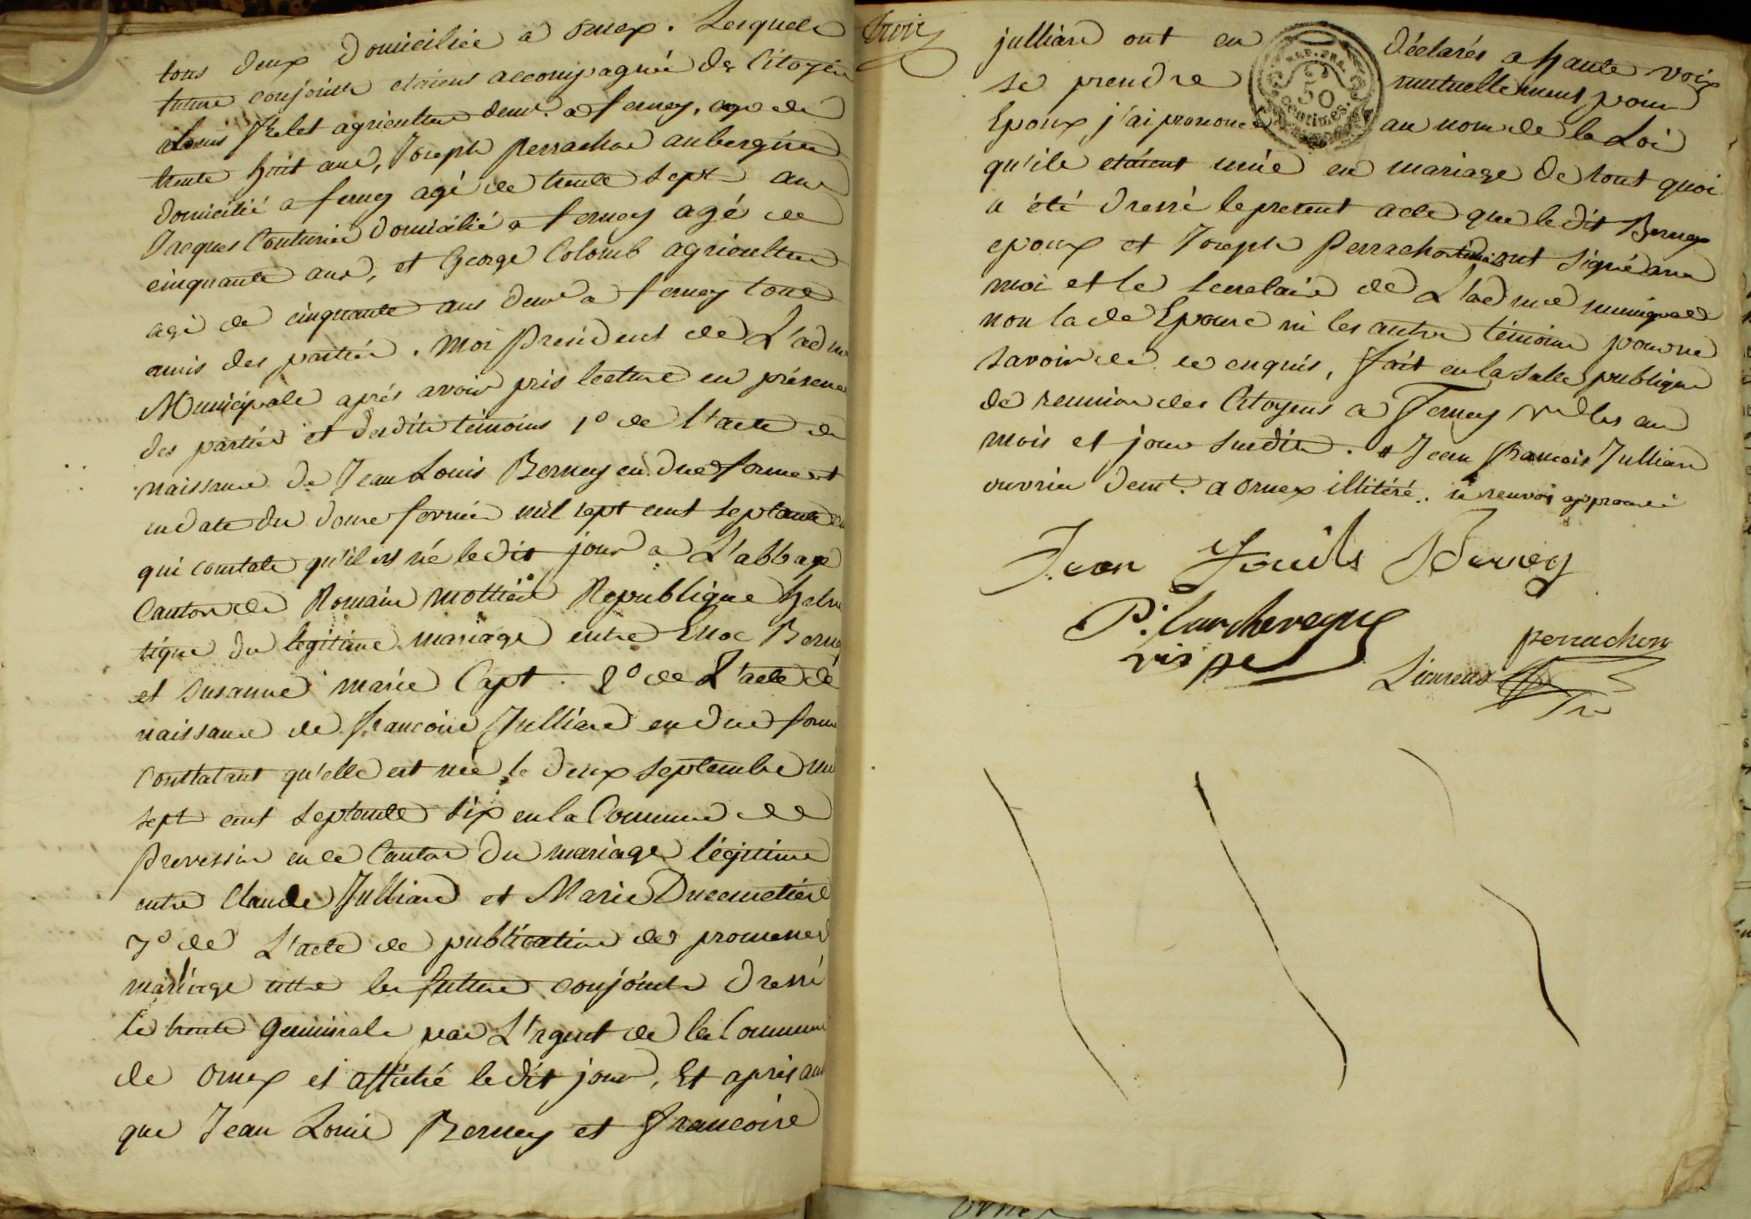 tous deux domiciliés a ornex. Lesquels
futurs conjoints etaient accompagnés des Citoyens
Louis agriculteur demt a ferney, age de
trente huit ans, Joseph perrachon aubergiste
domicilié a ferney agé de trente sept ans
Jacques Couturier domicilié a ferney agé de
cinquante ans, et George Colomb agriculteur
agé de cinquante ans demt a ferney tous
amis des parties. Moi president de L'adm
Municipale aprés avoir pris lecture en présence
des parties et desdits témoins 1° de l'acte de
naissance de Jean Louis Berney en due forme et
en date du douze fevrier mil sept cent septante
qui constate qu'il est né le dit jour a L'abbaye
Canton de Romain mottier Republique helve
tique du legitime mariage entre Enoc Berney
et Susanne marie Capt. 2° de L'acte de
naissance de francoise Julliard en due forme
Constatant qu'elle est née le deux septembre mil
sept cent septante six en la Commune de
prevessin en ce Canton du mariage légitime
entre Claude Julliard et Marie Ducimetière
3° de L'acte de publication de promesses
mariage entre les futurs conjoints dressé
le trente Germinal par L'agent de la Commune
de ornex et affiché le dit jour, Et apris aussi
que Jean Louis Berney et francoise
trois
julliard ont eu déclarés a haute voix
se prendre mutuellement pour
Epoux, j'ai prononcé au nom de la Loi
50
Centimes.
qu'ils etaient unis en mariage de tout quoi
a été dressé le present acte que le dit Berney
epoux et Joseph perrachon témoin ont signé avec
moi et le secretaire de L'adm municipale
non la de Epouse ni les autres témoins pour ne
savoir de ce enquis, fait en la Salle publique
de reunion des Citoyens a Ferney les an
mois et jour susdits. # Jean francois Julliard
ouvrier demt. a ornex illitéré. ce renvoi approuvé
Jean Louils Berney
P. Larcheveque
perrachon